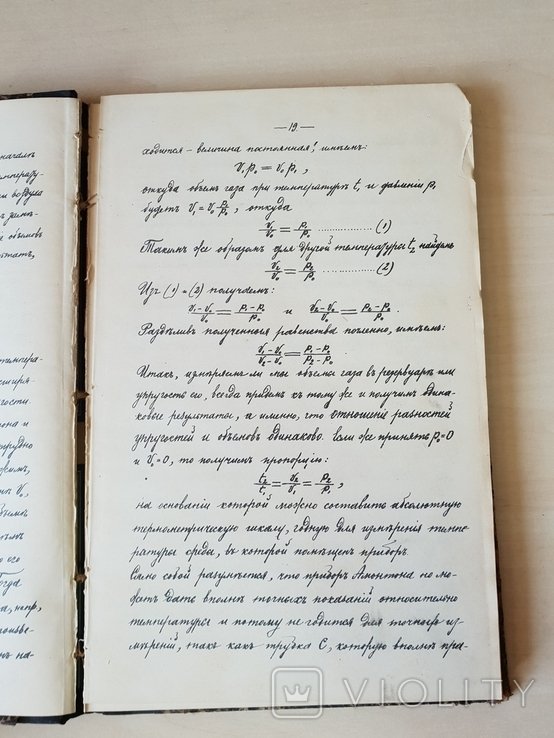 началѣ
— 19. —
ходится – величина постоянная, имѣемъ:
V₁p₀ = V₀p₁,
откуда объемъ газа при температурѣ t₁ и давленіи p₁
будетъ V₁ = V₀ p₁/p₀, откуда
V₁/V₀ = p₁/p₀ .......... (1)
Такимъ же образомъ для другой температуры t₂ найдемъ
V₂/V₀ = p₂/p₀ .......... (2)
Изъ (1) = (2) получаемъ:
V₁ – V₀/V₀ = p₁ – p₀/p₀ и V₂ – V₀/V₀ = p₂ – p₀/p₀.
Раздѣливъ полученныя равенства почленно, имѣемъ:
V₁ – V₀/V₂ – V₀ = p₁ – p₀/p₂ – p₀.
Итакъ, измѣряемъ ли мы объемъ газа въ резервуарѣ или
упругость его, всегда придемъ къ тому же и получимъ одина-
ковые результаты, а именно, что отношеніе разностей
упругостей и объемовъ одинаково. Если же принять p₀=0
и V₀=0, то получимъ пропорцію:
t₂/t₁ = V₂/V₁ = p₂/p₁,
на основаніи которой можно составить абсолютную
термометрическую шкалу, годную для измѣренія темпе-
ратуры среды, въ которой помѣщенъ приборъ.
Само собой разумѣется, что приборъ Амонтона не мо-
жетъ дать вполнѣ точныхъ показаній относительно
температуры и потому не годится для точныхъ из-
мѣреній, такъ какъ трубка С, которую вполнѣ пра-
VIOLITY